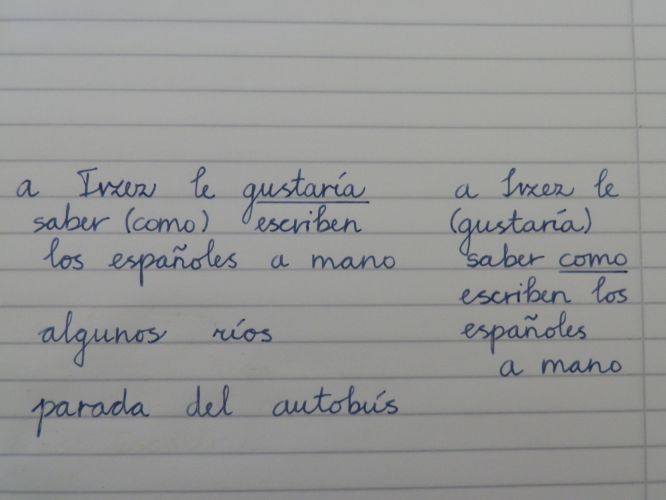 a Irxez le gustaría
saber (como) escriben
los españoles a mano
algunos ríos
parada del autobús
a Irxez le
(gustaría)
saber como
escriben los
españoles
a mano